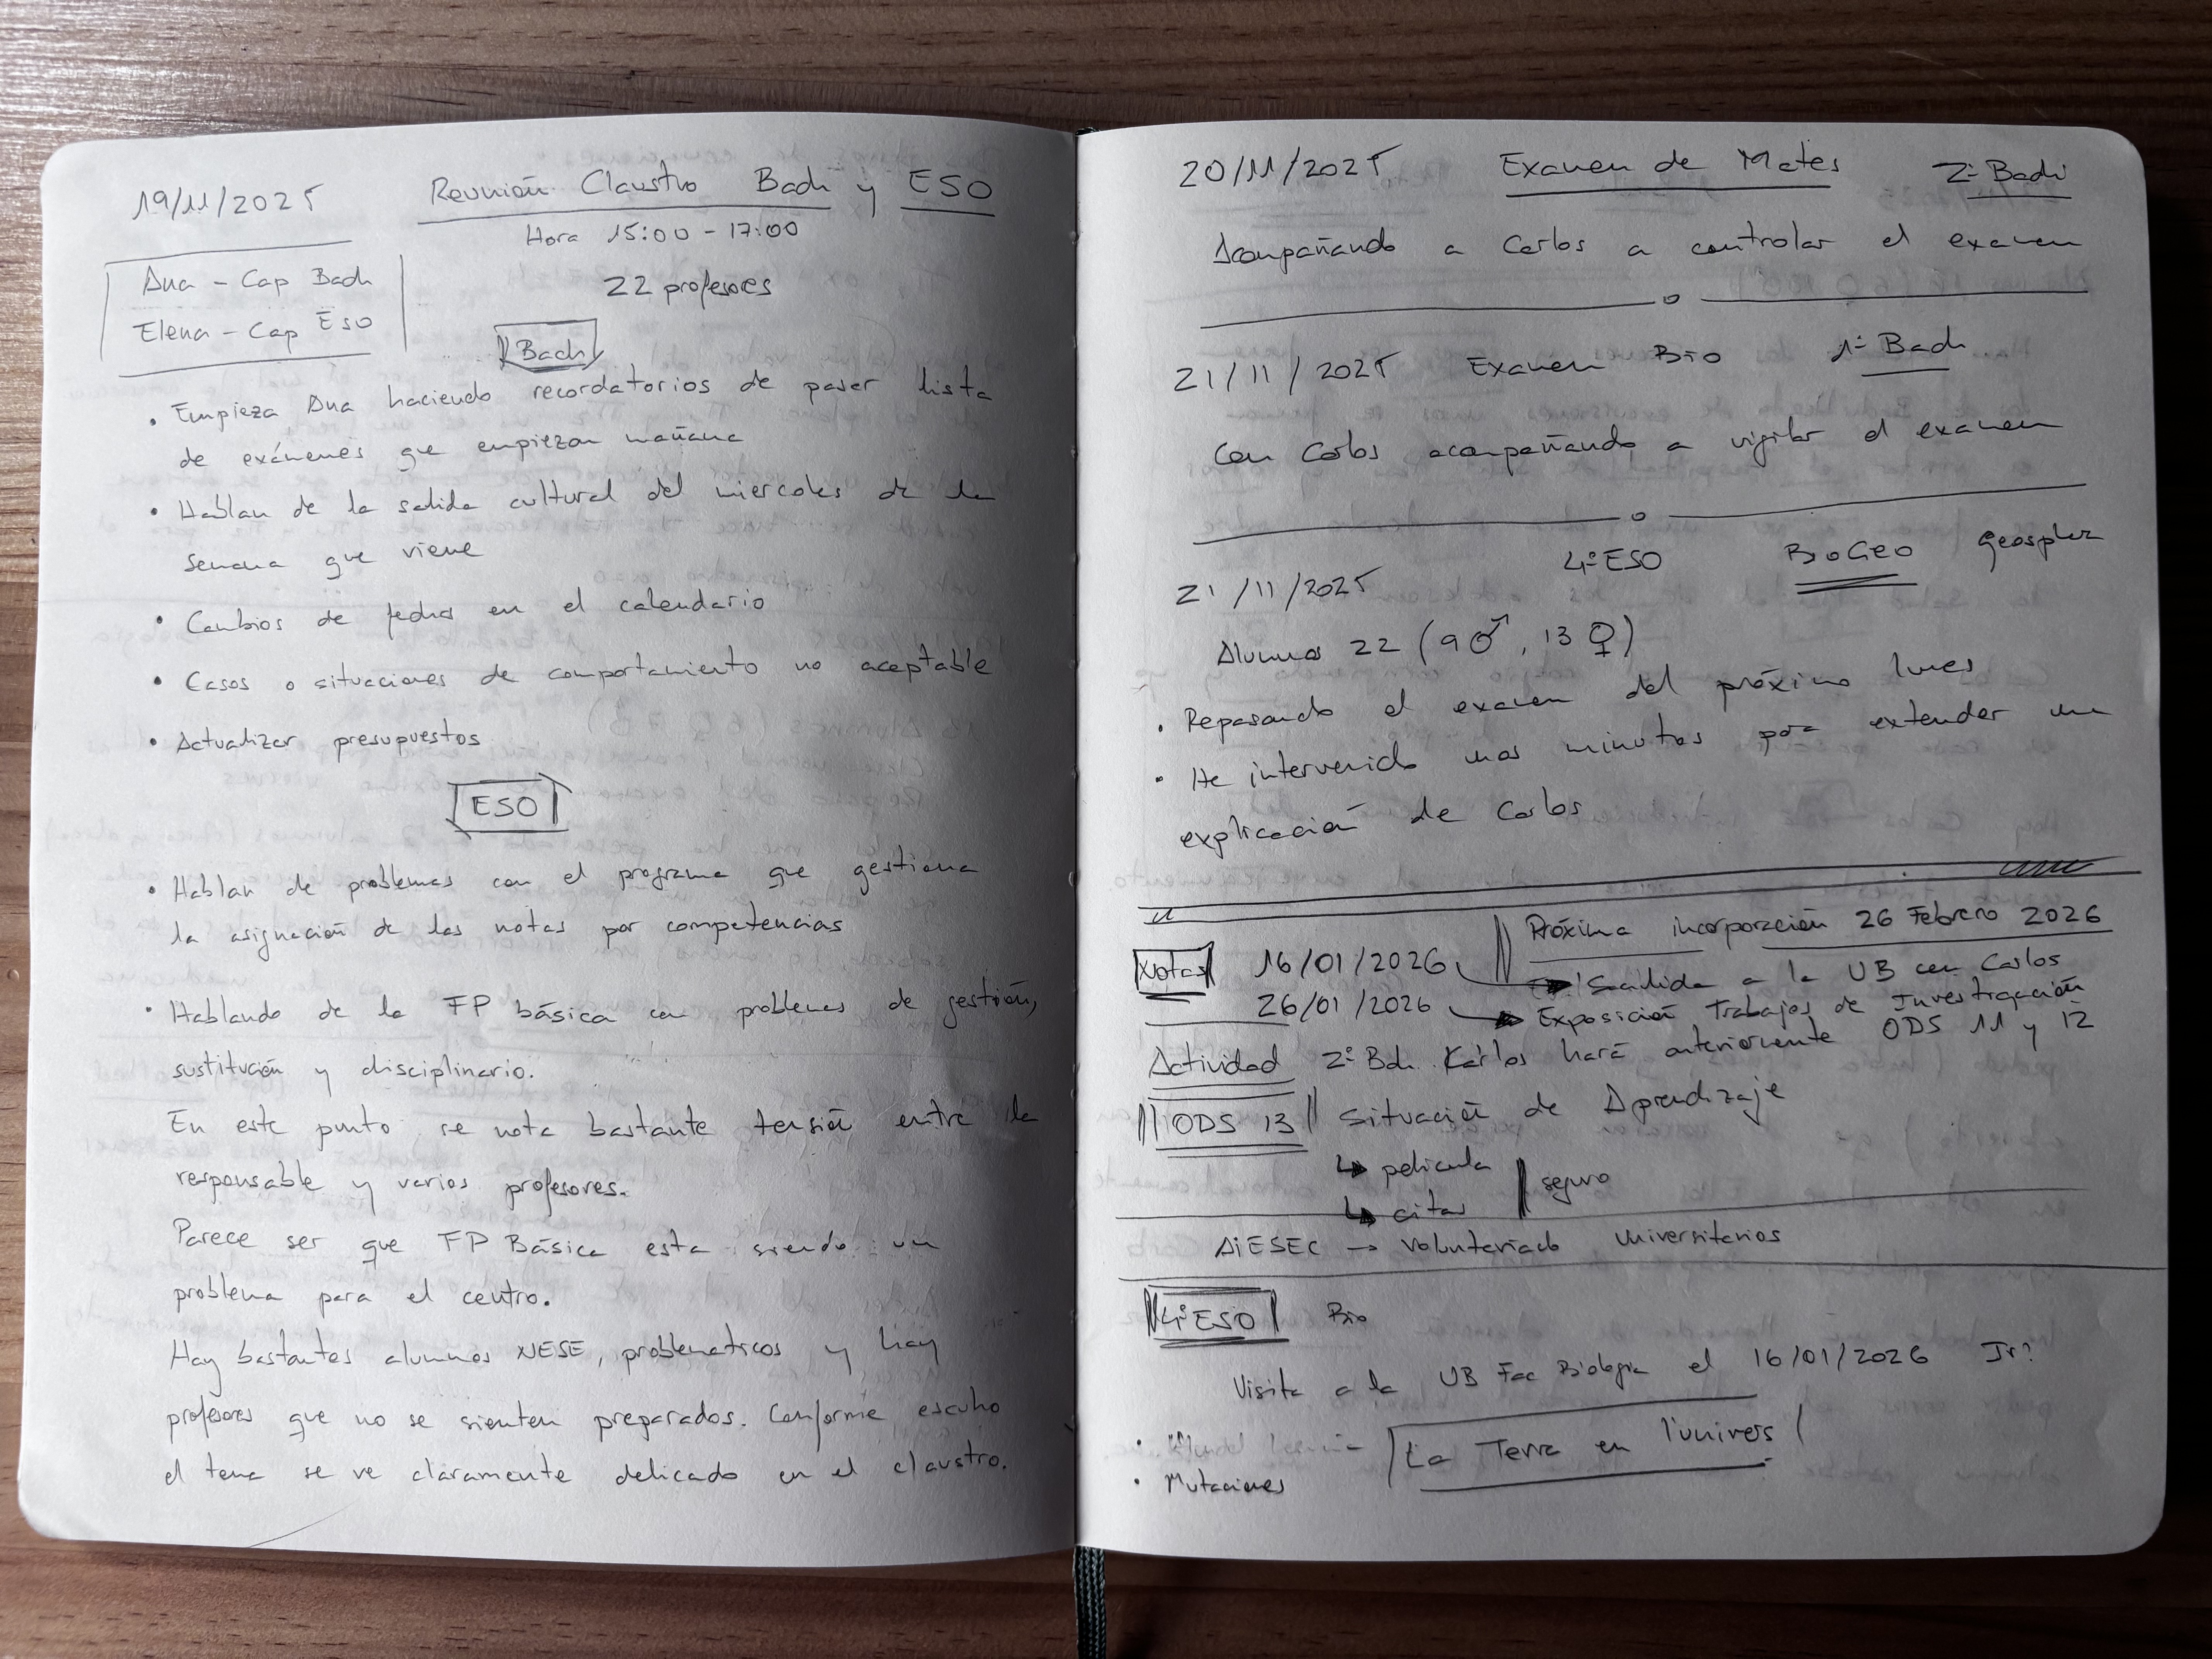 19/11/2025 Reunión Claustro Bach y ESO
Hora 15:00 - 17:00
Ana - Cap Bach
Elena - Cap ESO
22 profesores
Bach
• Empieza Ana haciendo recordatorios de pasar lista
de exámenes que empiezan mañana
• Hablan de la salida cultural del miercoles de la
semana que viene
• Cambios de fechas en el calendario
• Casos o situaciones de comportamiento no aceptable
• Actualizar presupuestos
ESO
• Hablan de problemas con el programa que gestiona
la asignación de las notas por competencias
• Hablando de la FP básica con problemas de gestión,
sustitución y disciplinario.
En este punto se nota bastante tensión entre la
responsable y varios profesores.
Parece ser que FP Básica esta siendo un
problema para el centro.
Hay bastantes alumnos NESE, problematicos y hay
profesores que no se sienten preparados. Conforme escuho
el tema se ve claramente delicado en el claustro.
20/11/2025 Examen de Mates 2º Bach
Acompañando a Carlos a controlar el examen
21/11/2025 Examen Bio 1º Bach
Con Carlos acompañando a vigilar el examen
21/11/2025 4º ESO BioGeo
Alumnos 22 (9♂, 13♀)
• Repasando el examen del próximo lunes
• He intervenido unos minutos para extender una
explicación de Carlos
Próxima incorporación 26 Febrero 2026
Notas 16/01/2026 Salida a la UB con Carlos
26/01/2026 Exposición Trabajos de Investigación
Actividad 2º Bch. Karlos hará anteriormente ODS 11 y 12
ODS 13 Situación de Aprendizaje
↳ pelicula
↳ citas
seguro
AiESEC → Voluntariado Universitarios
4º ESO Bio
Visita a la UB Fac Biologia el 16/01/2026 Ir?
La Terra en l'univers
• Mutaciones